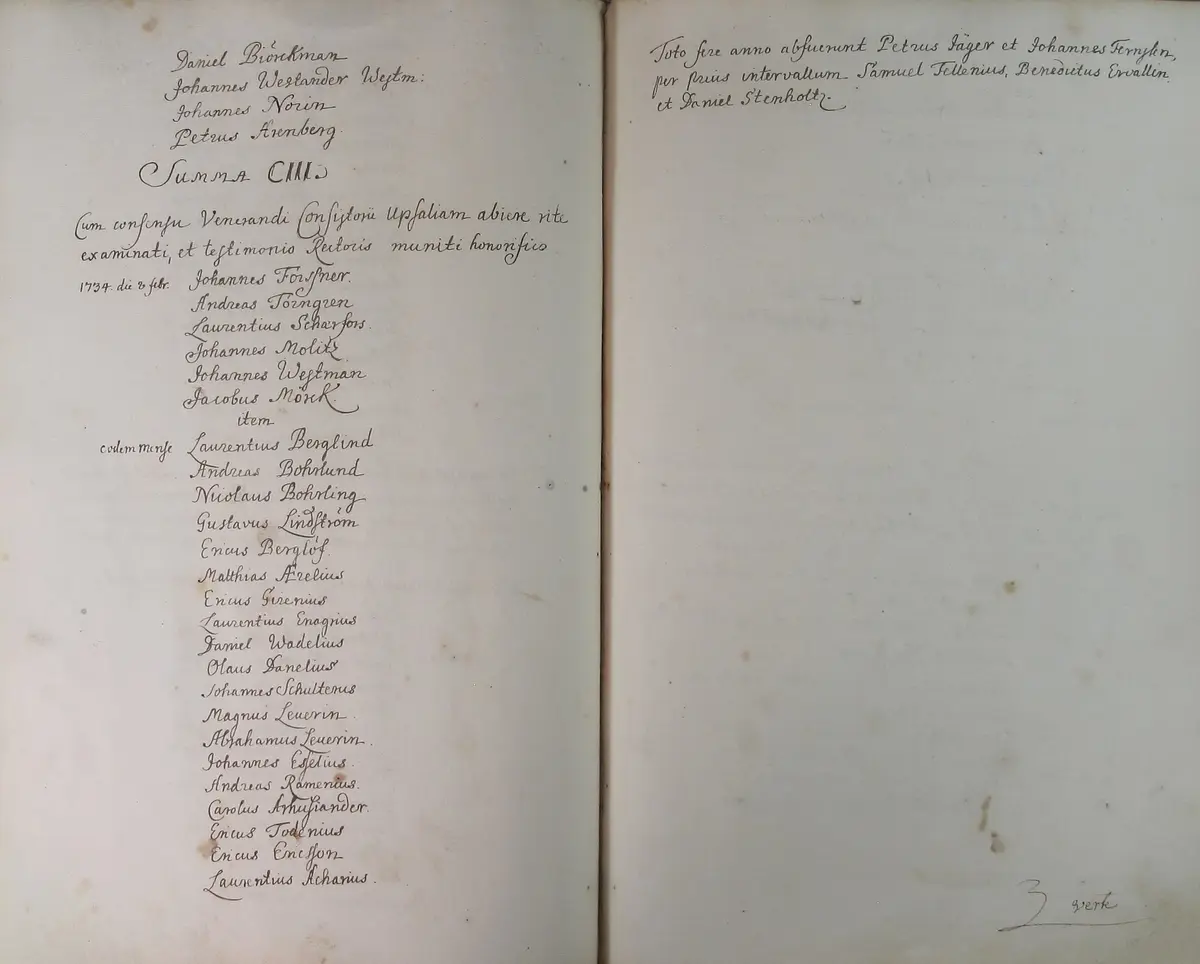 Daniel Biörckman
Johannes Westander Westm:
Johannes Norin
Petrus Arenberg.
Summa CIII.
Cum consensu Venerandi Consistorii Upsaliam abiere rite
examinati, et testimonio Rectoris muniti honorifico
1734. die 8 febr. Johannes Forssner.
Andreas Törngren
Laurentius Schærfors.
Johannes Molitz
Johannes Westman
Jacobus Mörck.
item
eodem mense Laurentius Berglind
Andreas Bohrlund
Nicolaus Bohrling
Gustavus Lindström
Ericus Berglöf.
Matthias Ærelius
Ericus Girenius
Laurentius Enagrius
Daniel Wadelius
Olaus Danelius
Johannes Schulterus
Magnus Leuerin.
Abrahamus Leuerin.
Johannes Esselius.
Andreas Ramenius.
Carolus Arhusiander.
Ericus Todenius
Ericus Ericsson
Laurentius Acharius.
Toto fere anno abfuerunt Petrus Jäger et Johannes
per prius intervallum Samuel Tellenius, Benedictus Ervallin
et Daniel Stenholtz.
3 verk